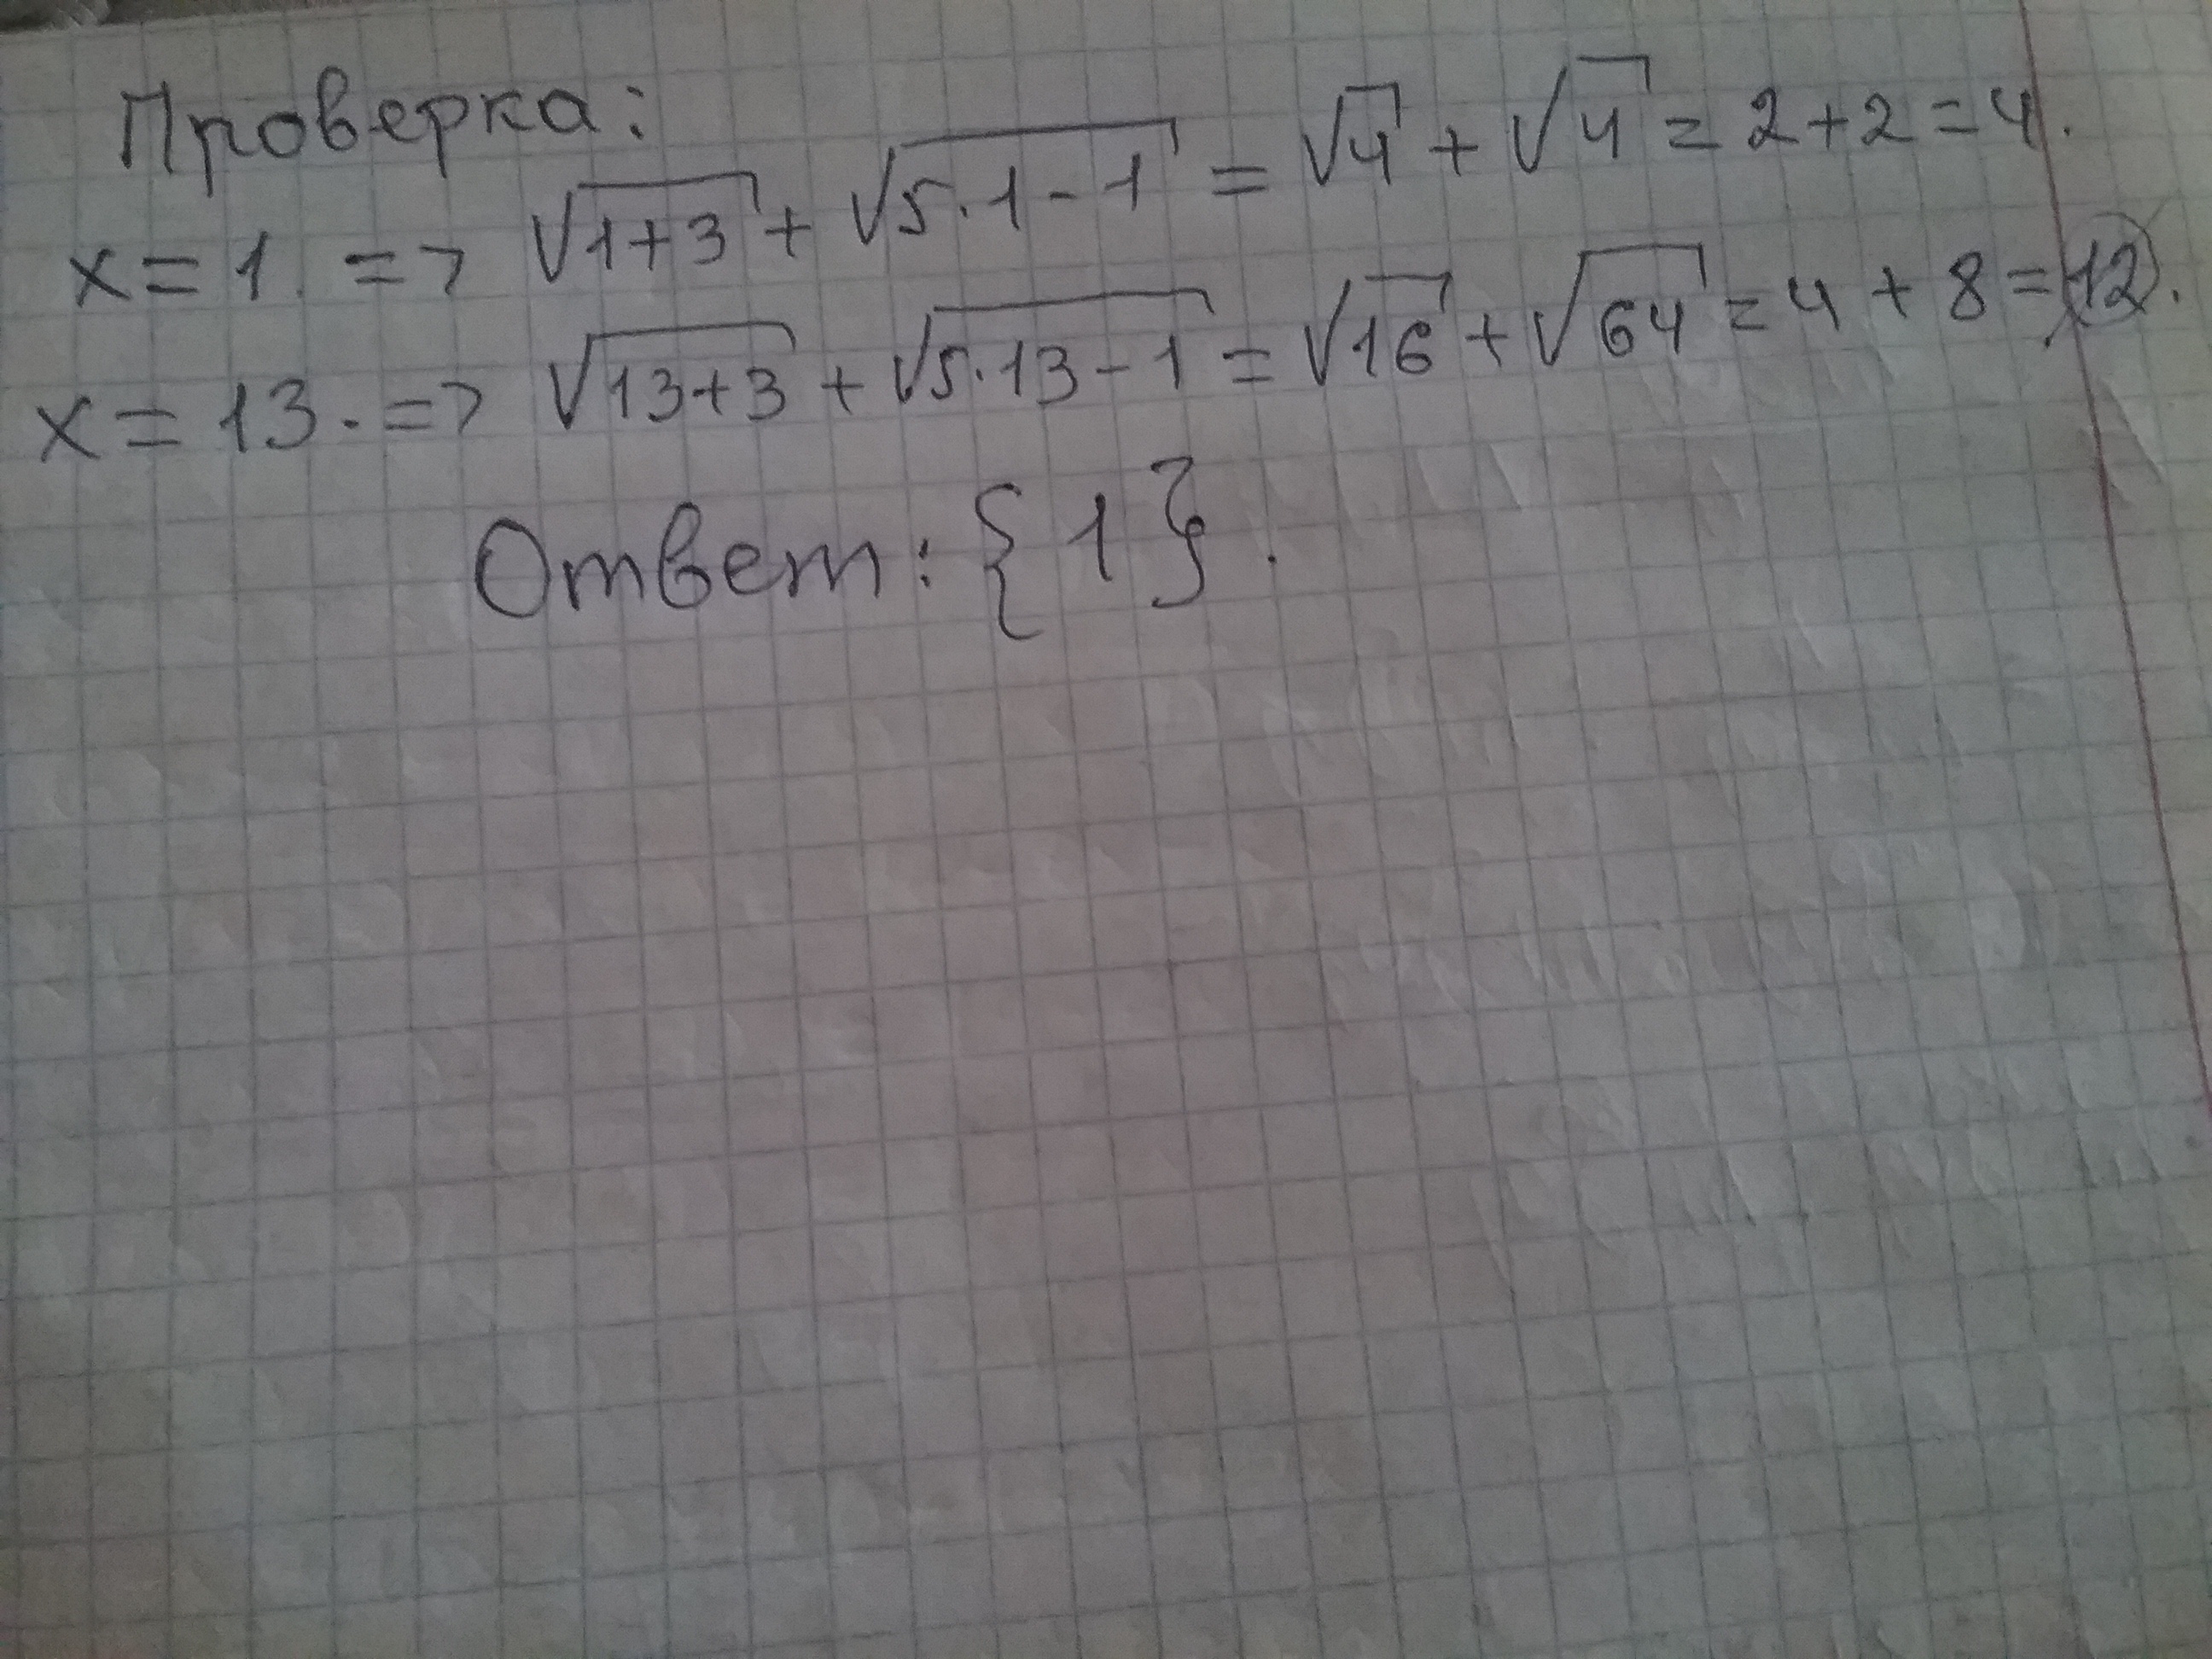 Проверка:
x=1. => √1+3 + √5·1-1 = √4 + √4 = 2+2=4.
x=13. => √13+3 + √5·13-1 = √16 + √64 = 4+8=12.
Ответ: {1}.